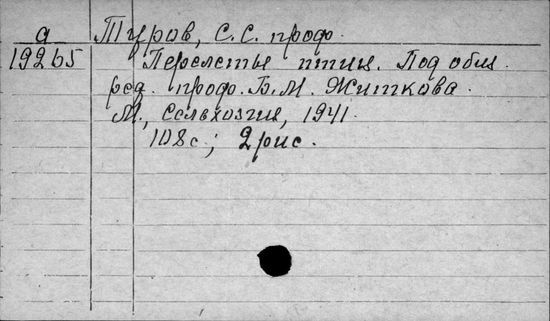 а Туров, С.С. проф.
19265 Перелеты птиц. Под общ.
ред. проф. Б.М. Житкова.
М., Сельхозгиз, 1941.
108с.; 2рис.